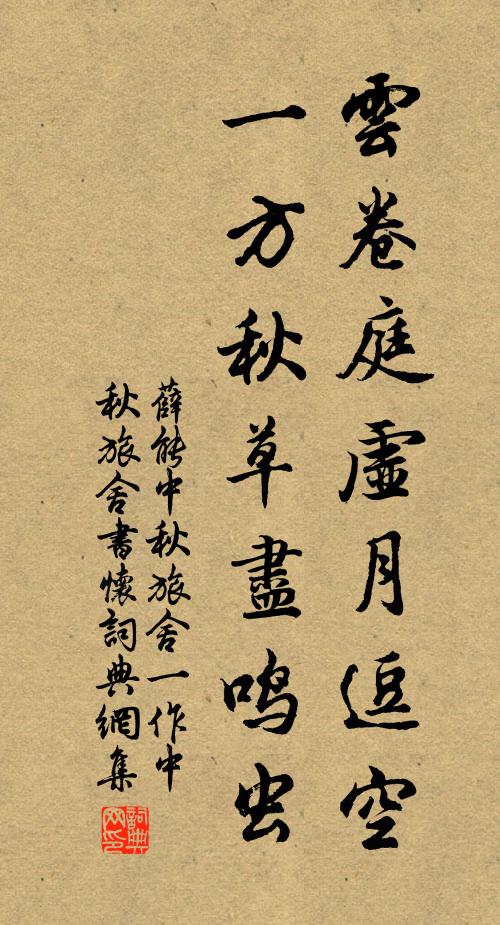 雲卷庭虛月逗空
一方秋草盡鳴虫
薛能中秋旅舍一作中
秋旅舍書懷詞典網集
詞典网印